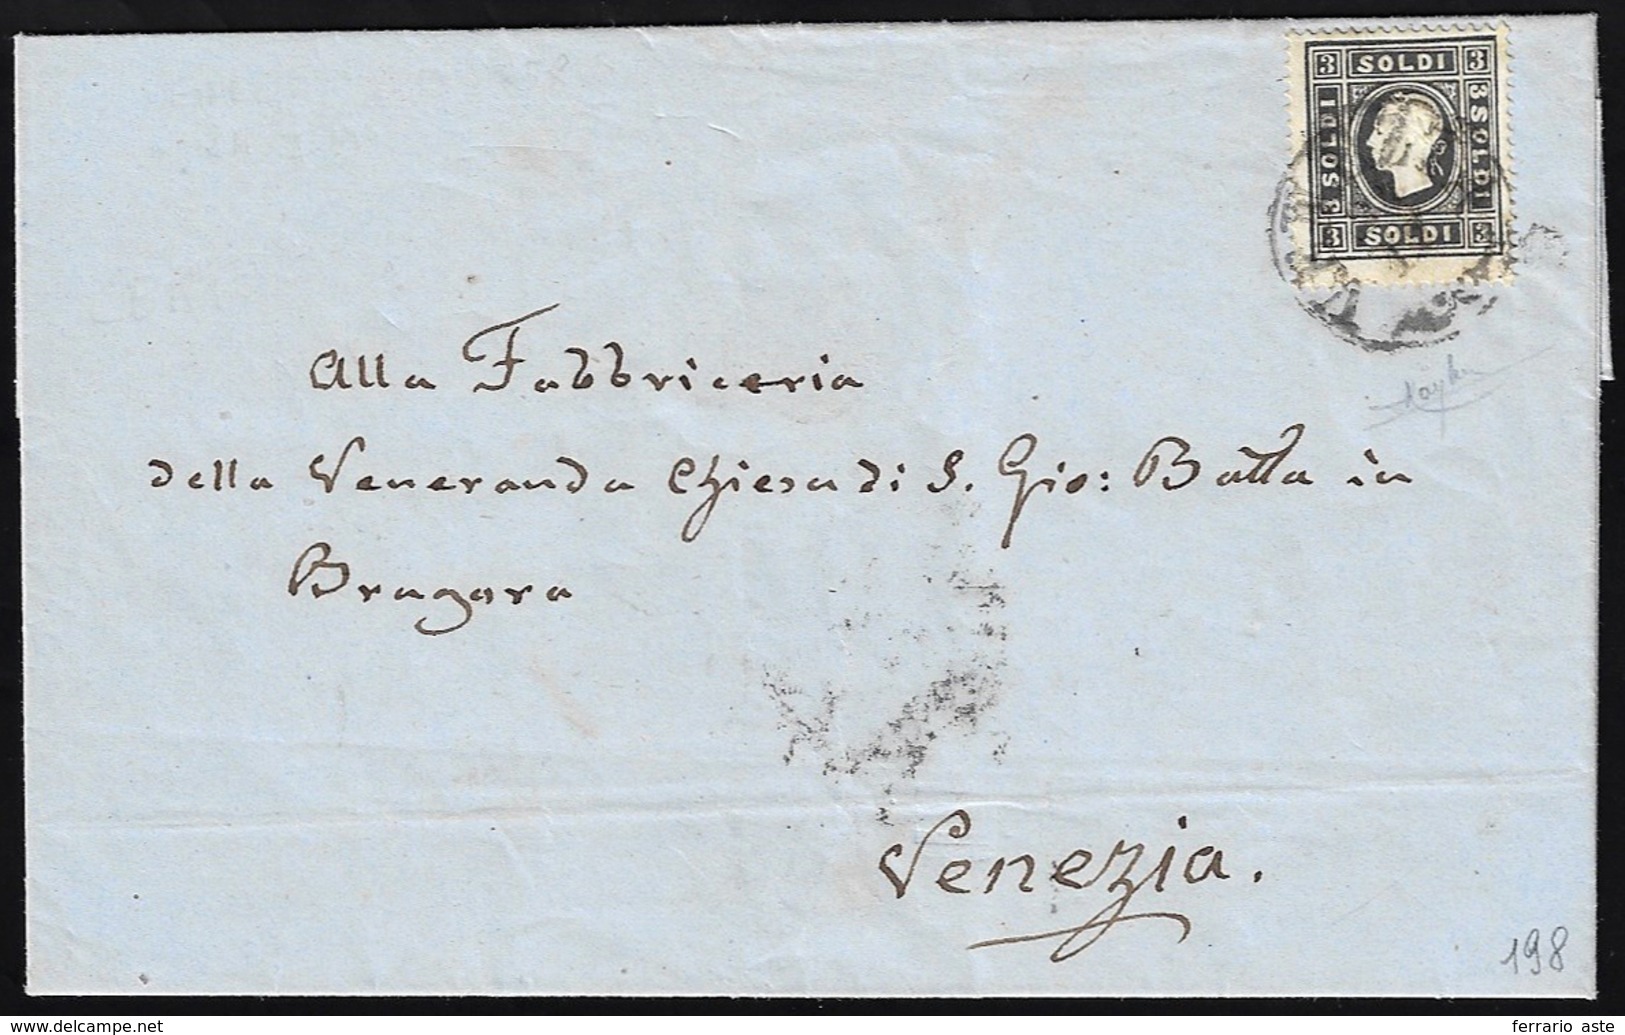 3 SOLDI 3
3 SOLDI
3 SOLDI
3 SOLDI 3
Alla Fabbriceria
della Veneranda Chiesa di S. Gio: Batta in
Bragora
Venezia.
198
delcampe.net
ferrario aste